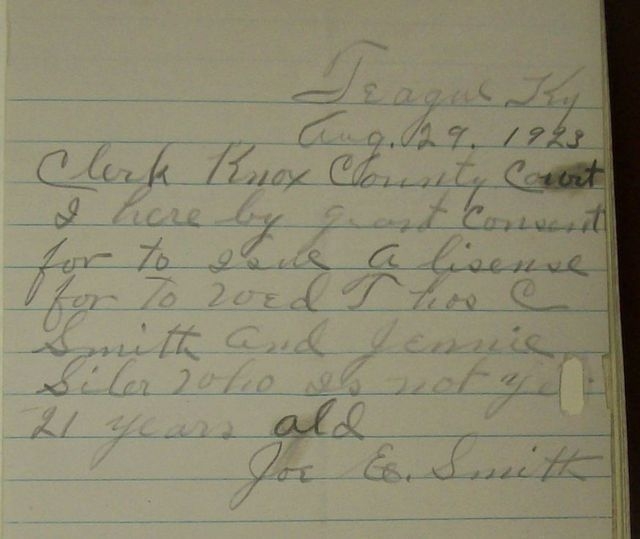 Teague Ky
Aug. 29. 1923
Clerk Knox County Court
I here by grant consent
for to issue a lisense
for to wed Thos C
Smith and Jennie
Siler who is not
21 years old
Joe E. Smith